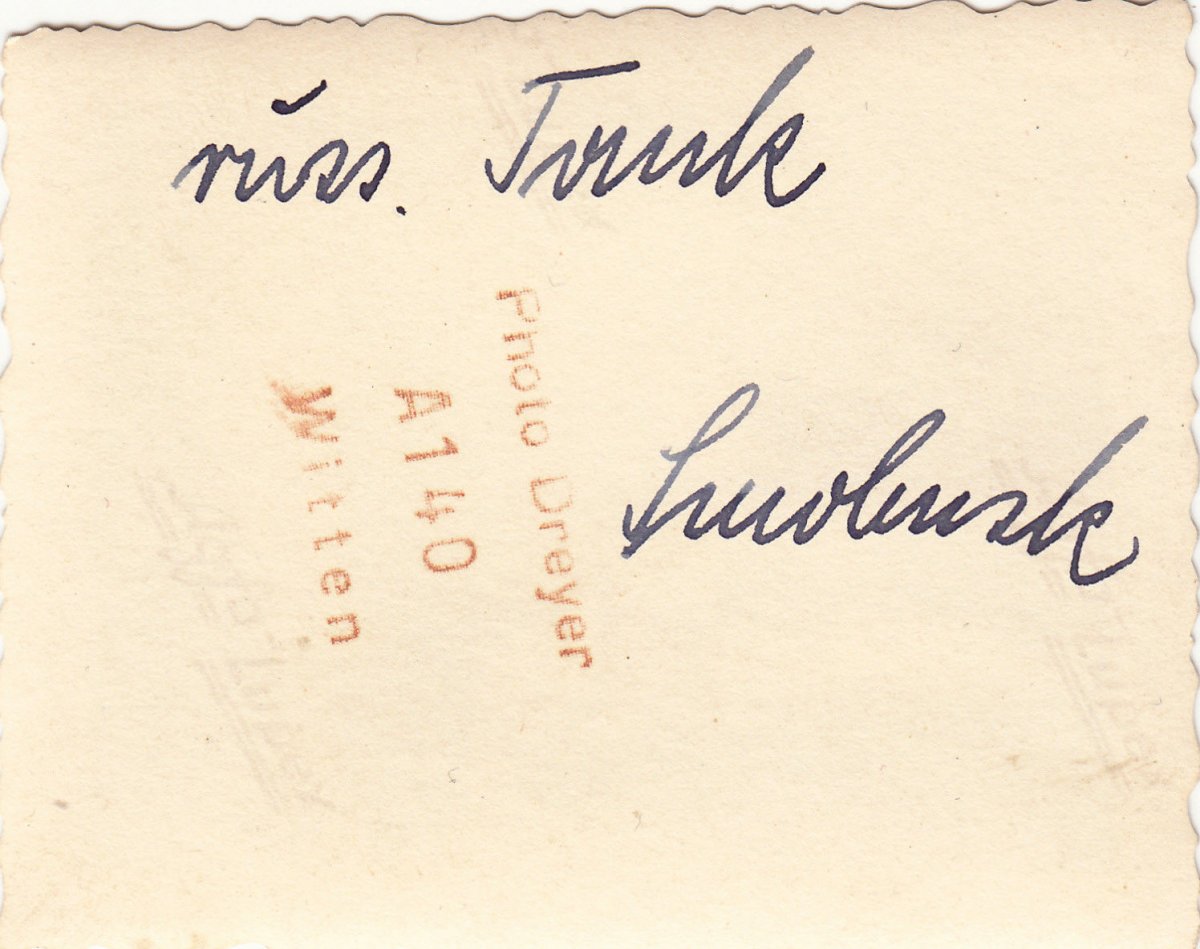 russ. Tank
Smolensk
Photo Dreyer
A140
Witten